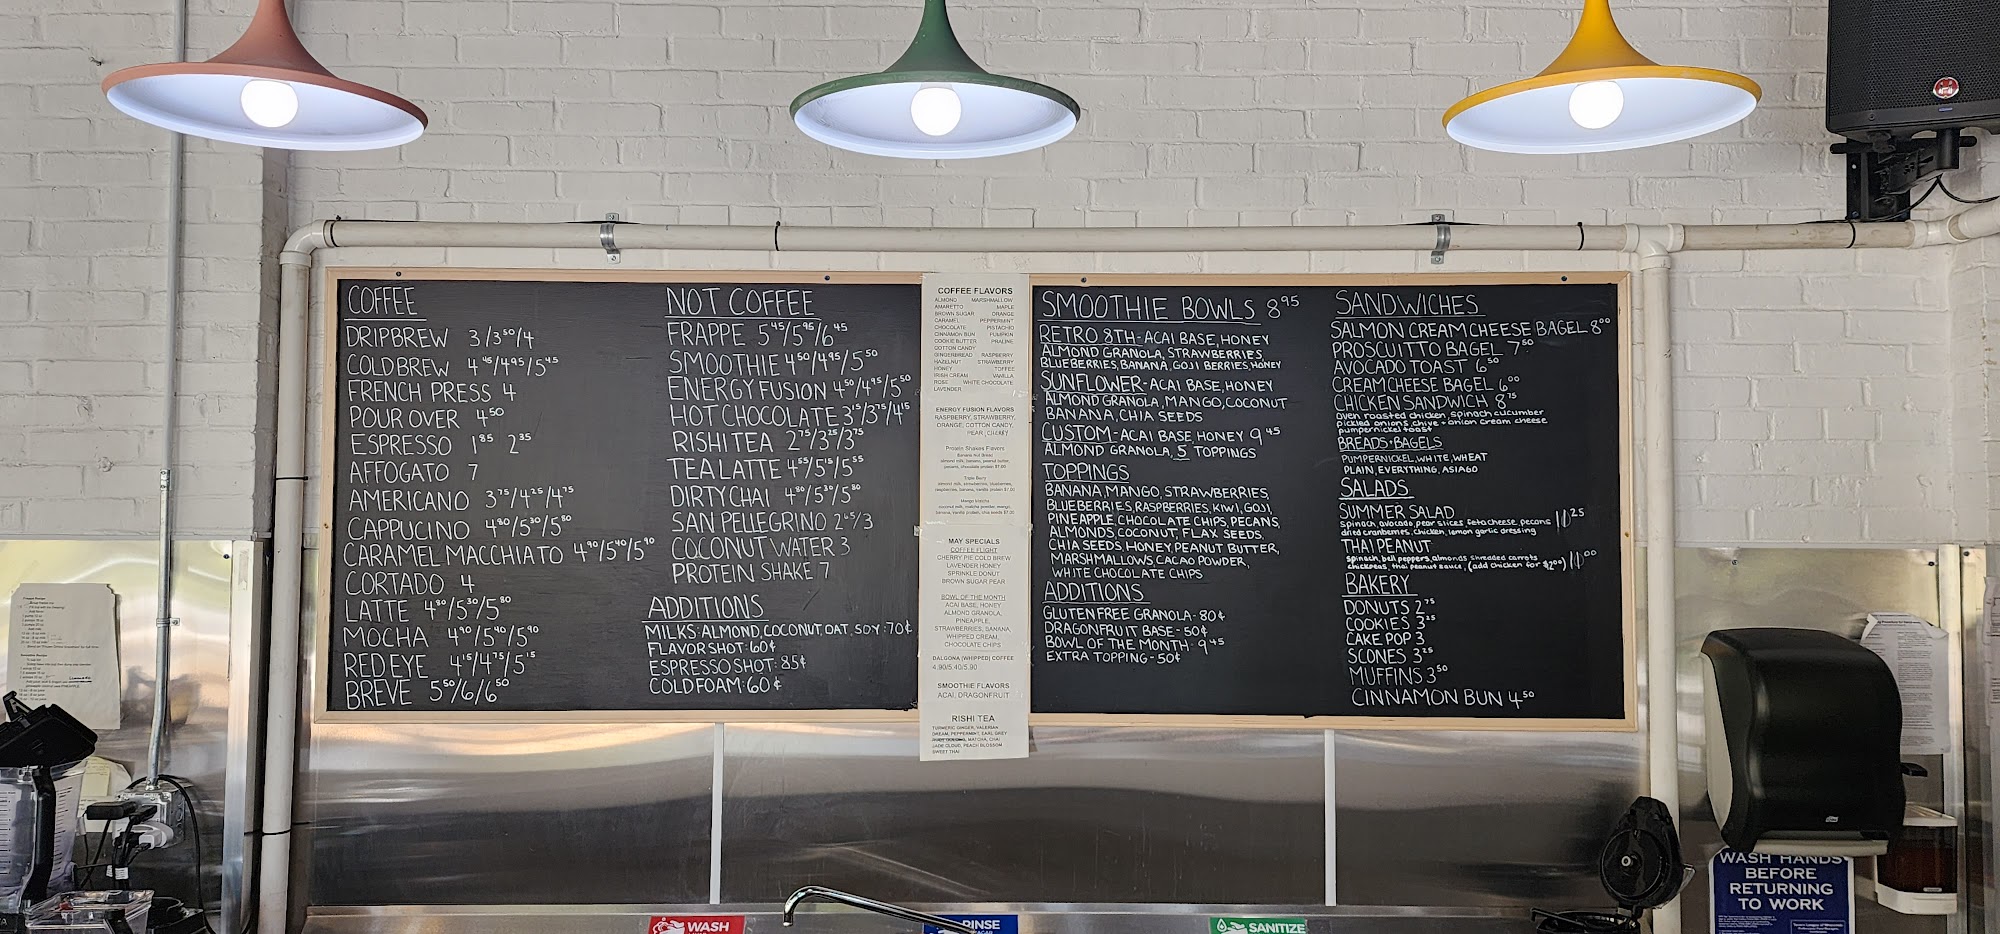 COFFEE
DRIPBREW 3/3⁵⁰/4
COLDBREW 4⁴⁵/4⁹⁵/5⁴⁵
FRENCH PRESS 4
POUR OVER 4⁵⁰
ESPRESSO 1⁸⁵ 2³⁵
AFFOGATO 7
AMERICANO 3⁷⁵/4²⁵/4⁷⁵
CAPPUCINO 4⁸⁰/5³⁰/5⁸⁰
CARAMEL MACCHIATO 4⁹⁰/5⁴⁰/5⁹⁰
CORTADO 4
LATTE 4⁸⁰/5³⁰/5⁸⁰
MOCHA 4⁹⁰/5⁴⁰/5⁹⁰
REDEYE 4¹⁵/4⁷⁵/5¹⁵
BREVE 5⁵⁰/6/6⁵⁰
NOT COFFEE
FRAPPE 5⁴⁵/5⁹⁵/6⁴⁵
SMOOTHIE 4⁵⁰/4⁹⁵/5⁵⁰
ENERGY FUSION 4⁵⁰/4⁹⁵/5⁵⁰
HOT CHOCOLATE 3¹⁵/3⁷⁵/4¹⁵
RISHI TEA 2⁷⁵/3²⁵/3⁷⁵
TEA LATTE 4⁵⁵/5¹⁵/5⁵⁵
DIRTY CHAI 4⁸⁰/5³⁰/5⁸⁰
SAN PELLEGRINO 2⁶⁵/3
COCONUT WATER 3
PROTEIN SHAKE 7
ADDITIONS
MILKS: ALMOND, COCONUT, OAT, SOY: 70¢
FLAVOR SHOT: 60¢
ESPRESSO SHOT: 85¢
COLD FOAM: 60¢
COFFEE FLAVORS
ALMOND MARSHMALLOW
AMARETTO MAPLE
BROWN SUGAR ORANGE
CARAMEL PEPPERMINT
CHOCOLATE PISTACHIO
CINNAMON BUN PUMPKIN
COOKIE BUTTER PRALINE
COTTON CANDY
GINGERBREAD RASPBERRY
HAZELNUT STRAWBERRY
HONEY TOFFEE
IRISH CREAM VANILLA
ROSE WHITE CHOCOLATE
LAVENDER
ENERGY FUSION FLAVORS
RASPBERRY, STRAWBERRY,
ORANGE, COTTON CANDY,
PEAR, CHERRY
Protein Shakes Flavors
Banana Nut Bread
almond milk, banana, peanut butter,
pecans, chocolate protein $7.00
Triple Berry
almond milk, strawberries, blueberries,
raspberries, banana, vanilla protein $7.00
Mango Matcha
coconut milk, matcha powder, mango,
banana, vanilla protein, chia seeds $7.00
MAY SPECIALS
COFFEE FLIGHT
CHERRY PIE COLD BREW
LAVENDER HONEY
SPRINKLE DONUT
BROWN SUGAR PEAR
BOWL OF THE MONTH
ACAI BASE, HONEY,
ALMOND GRANOLA,
PINEAPPLE,
STRAWBERRIES, BANANA,
WHIPPED CREAM,
CHOCOLATE CHIPS
DALGONA (WHIPPED) COFFEE
4.90/5.40/5.90
SMOOTHIE FLAVORS
ACAI, DRAGONFRUIT
RISHI TEA
TURMERIC GINGER, VALERIAN
DREAM, PEPPERMINT, EARL GREY
MATCHA, CHAI
JADE CLOUD, PEACH BLOSSOM
SWEET THAI
SMOOTHIE BOWLS 8⁹⁵
RETRO 8TH- ACAI BASE, HONEY
ALMOND GRANOLA, STRAWBERRIES,
BLUEBERRIES, BANANA, GOJI BERRIES, HONEY
SUNFLOWER- ACAI BASE, HONEY
ALMOND GRANOLA, MANGO, COCONUT
BANANA, CHIA SEEDS
CUSTOM- ACAI BASE, HONEY 9⁴⁵
ALMOND GRANOLA, 5 TOPPINGS
TOPPINGS
BANANA, MANGO, STRAWBERRIES,
BLUEBERRIES, RASPBERRIES, KIWI, GOJI,
PINEAPPLE, CHOCOLATE CHIPS, PECANS,
ALMONDS, COCONUT, FLAX SEEDS,
CHIA SEEDS, HONEY, PEANUT BUTTER,
MARSHMALLOWS, CACAO POWDER,
WHITE CHOCOLATE CHIPS
ADDITIONS
GLUTEN FREE GRANOLA- 80¢
DRAGONFRUIT BASE- 50¢
BOWL OF THE MONTH- 9⁴⁵
EXTRA TOPPING- 50¢
SANDWICHES
SALMON CREAM CHEESE BAGEL 8⁰⁰
PROSCUITTO BAGEL 7⁵⁰
AVOCADO TOAST 6⁵⁰
CREAMCHEESE BAGEL 6⁰⁰
CHICKEN SANDWICH 8⁷⁵
oven roasted chicken, spinach, cucumber
pickled onions, chive + onion cream cheese
pumpernickel toast
BREADS + BAGELS
PUMPERNICKEL, WHITE, WHEAT
PLAIN, EVERYTHING, ASIAGO
SALADS
SUMMER SALAD 11²⁵
Spinach, avocado, pear slices, feta cheese, pecans
dried cranberries, chicken, lemon garlic dressing
THAI PEANUT 11⁰⁰
spinach, bell peppers, almonds shreaded carrots
chickpeas, thai peanut sauce, (add chicken for $2⁰⁰)
BAKERY
DONUTS 2⁷⁵
COOKIES 3²⁵
CAKE POP 3
SCONES 3²⁵
MUFFINS 3⁵⁰
CINNAMON BUN 4⁵⁰
WASH HANDS
BEFORE
RETURNING
TO WORK
WASH
RINSE
SANITIZE